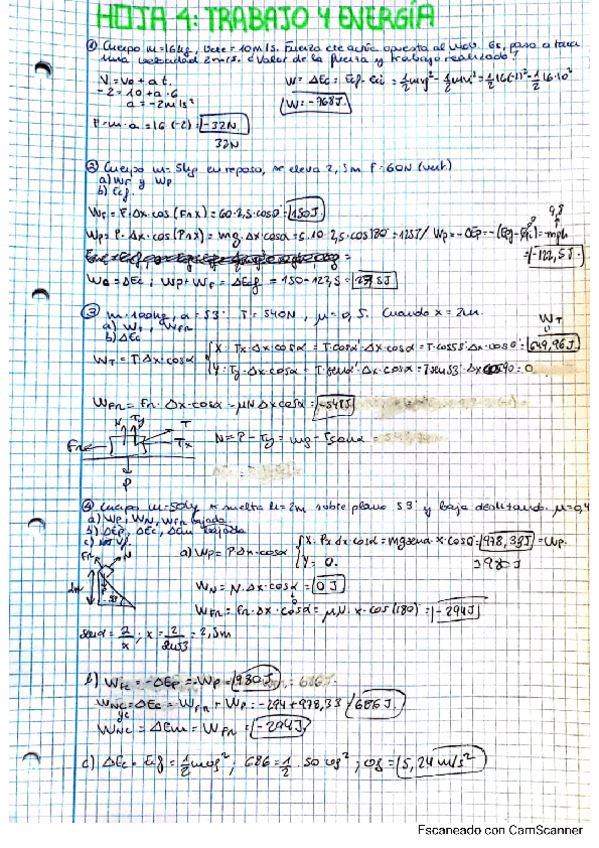 HOJA 4: TRABAJO Y ENERGÍA
① Cuerpo m=16kg, 10m/s. Fuerza cte actúa opuesta al mov. 6s, para a tener
una velocidad 2m/s. ¿Valor de la fuerza y trabajo realizado?
V = v₀ + a t. W = ΔEc = Ecf - Eci = ½mvf² - ½mvi² = ½16(-2)² - ½16·10²
-2 = 10 + a·6 W = -768J.
a = -2m/s²
F = m·a = 16·(-2) = -32N.
32N
② Cuerpo m=5kg en reposo, se eleva 2,5m F=60N (vert)
a) WF y Wp
b) Ecf.
WF = F·Δx·cos(FΛx) = 60·2,5·cos0 = 150J 9,8
Wp = P·Δx·cos(PΛx) = mg·Δx·cosα = 5·10·2,5·cos180 = 125J / Wp = -ΔEp = -(Epf-Epi) = -mgh
= -122,5J.
= ΔEc; Wp + WF = ΔEcf = 150-122,5 = 27,5J
③ m=100kg, α=53° T=540N, μ=0,5. Cuando x=2m.
a) WT, WFR
b) ΔEc
WT
WT = T·Δx·cosα { X: Tx·Δx·cosα = T·cosα·Δx·cosα = T·cos53·Δx·cos0 = 649,96J
Y: Ty·Δx·cosα = T·senα·Δx·cosα = T·sen53·Δx·cos90 = 0
WFR = FR·Δx·cosα = μN·Δx·cosα = -548J
N Ty T
FR Tx
N = P - Ty = mg - Tsenα =
P
④ Cuerpo m=50kg se suelta h=2m sobre plano 53° y baja deslizando. μ=0,4
a) Wp, WN, WFR bajada
b) ΔEp, ΔEc, ΔEm bajada
c) vf.
FR N
a) Wp = P·Δx·cosα { X: Px·Δx·cosα = mgsenα·x·cos0 = 978,33J = Wp.
Y: 0. 980J
2m 53
WN = N·Δx·cosα = 0J
WFR = FR·Δx·cosα = μN·x·cos(180) = -294J
senα = 2/x; x = 2/sen53 = 2,5m
b) WFC = -ΔEp = Wp = 980J
= ΔEc = WFR + Wp = -294+978,33 = 686J.
WNC = ΔEm = WFR = -294J.
c) ΔEc = Ecf = ½mvf²; 686 = ½·50·vf²; vf = 5,24m/s²
Escaneado con CamScanner